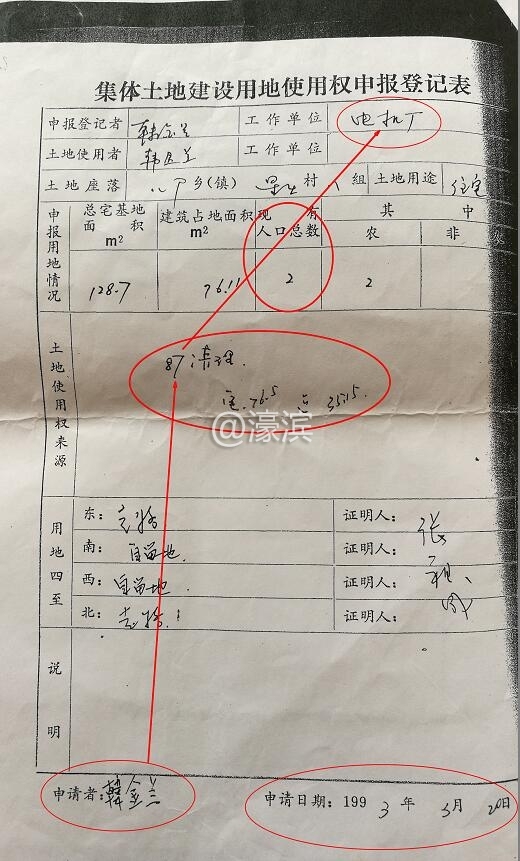 集体土地建设用地使用权申报登记表
申报登记者 韩金兰 工作单位 电机厂
土地使用者 韩金兰 工作单位
土地座落 乡(镇) 村 组 土地用途 住宅
申报用地情况
总宅基地面积 m2 建筑占地面积 m2 现有人口总数 其中
农 非农
128.7 76.11 2 2
土地使用权来源
87清理
76.5 35.15
@濠滨
用地四至
东: 证明人: 张
南: 自留地 证明人:
西: 自留地 证明人:
北: 证明人:
说明
申请者: 韩金兰 申请日期: 1993年3月20日